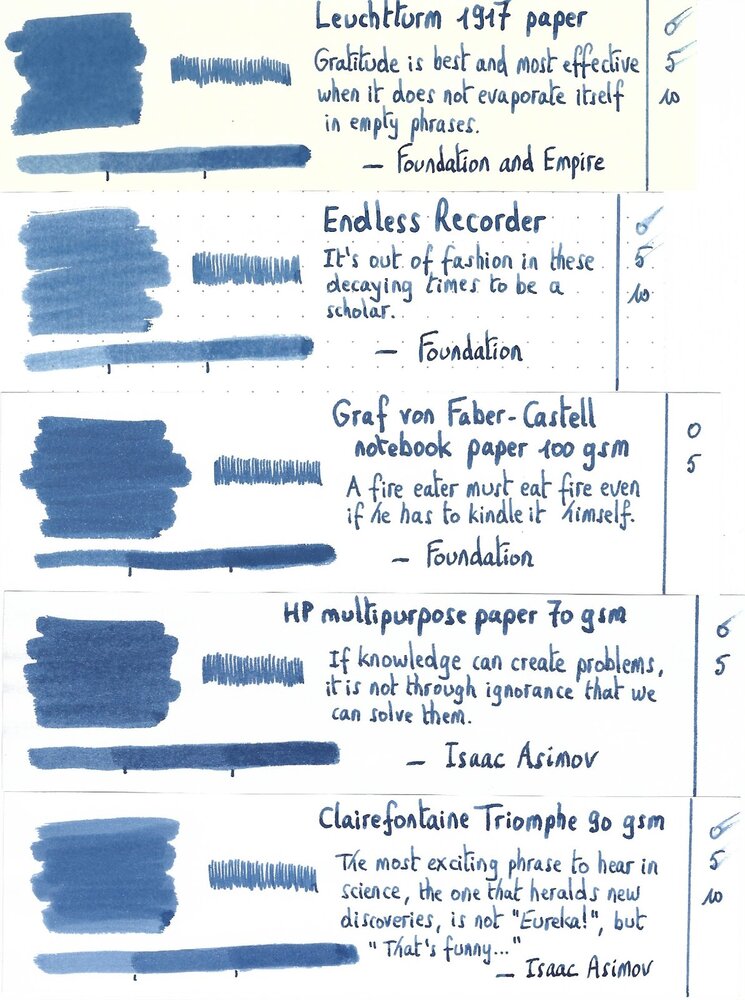 Leuchtturm 1917 paper
0
Gratitude is best and most effective
5
when it does not evaporate itself
10
in empty phrases.
— Foundation and Empire
Endless Recorder
0
It's out of fashion in these
5
decaying times to be a
10
scholar.
— Foundation
Graf von Faber-Castell
0
notebook paper 100 gsm
5
A fire eater must eat fire even
if he has to kindle it himself.
— Foundation
HP multipurpose paper 70 gsm
0
If knowledge can create problems,
5
it is not through ignorance that we
can solve them.
— Isaac Asimov
Clairefontaine Triomphe 90 gsm
0
The most exciting phrase to hear in
5
science, the one that heralds new
10
discoveries, is not "Eureka!", but
"That's funny..."
— Isaac Asimov